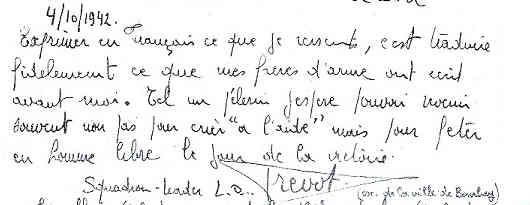 4/10/1942.
Exprimer en Français ce que je ressents, c'est traduire
fidèlement ce que mes frères d'arme ont ecrit
avant moi. Tel un pélerin j'espère pouvoir revenir
souvent non pas pour crier "a l'aide" mais pour fêter
en homme libre le jour de la victoire.
Squadron-Leader L.O. Prevot (esc. de la ville de